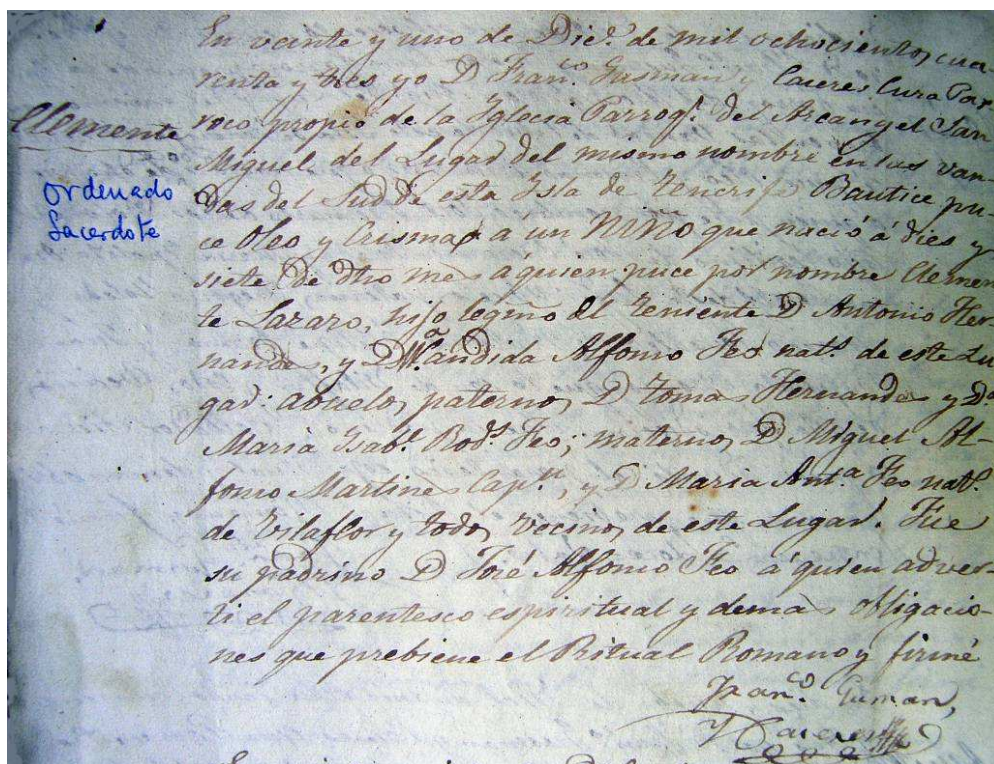 En veinte y uno de Dice. de mil ochocientos, cua-
renta y tres yo D Fran.co Gusman y Caceres Cura Par
Clemente
roco propio de la Yglecia Parroql. del Arcangel San
Miguel del Lugar del mismo nombre en las van-
ordenado
Sacerdote
das del Sud de esta Ysla de Tenerife Bautice pu-
ce Oleo y Crisma á un NIÑO que nació á dies y
siete de dho mes a quien puce por nombre Clemen
te Lazaro, hijo legmo del Teniente D Antonio Her-
nandes, y D.a Candida Alfonso Feo nats. de este Lu
gar: abuelos paternos D Tomas Hernandes y D.a
Maria Ysabl. Rods. Feo; maternos D Miguel Al-
fonso Martines Capn., y D Maria Ant.a Feo natl.
de Vilaflor y todos vecinos de este Lugar. Fue
su padrino D José Alfonso Feo á quien adver-
ti el parentesco espiritual y demas obligacio-
nes que prebiene el Ritual Romano y firmé
Fran.co Gusman
y Caceres